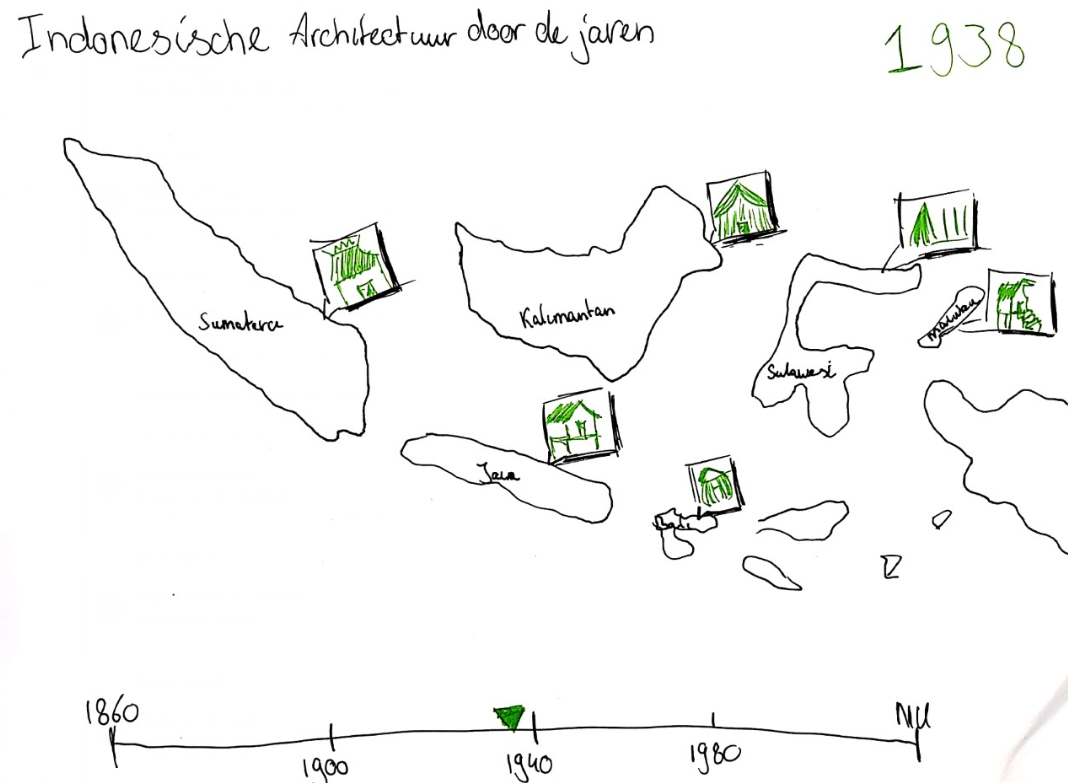 Indonesische Architectuur door de jaren
1938
Sumatera
Kalimantan
Sulawesi
Maluku
Java
Bali
1860
NU
1900
1940
1980